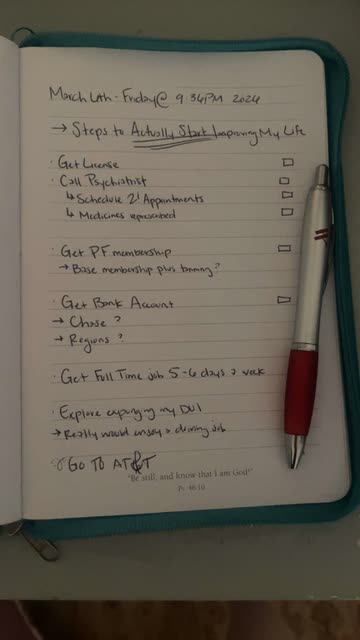 March 4th · Friday @ 9:36PM 2024
→ Steps to Actually Start Improving My Life
· Get License
· Call Psychiatrist
↳ Schedule 2! Appointments
↳ Medicines represcribed
· Get PF membership
→ Base membership plus tanning?
· Get Bank Account
→ Chase?
→ Regions?
· Get Full Time job 5-6 days a week
· Explore expunging my DUI
→ Really would enjoy a driving job
· Go TO AT&T
"Be still, and know that I am God!"
Ps. 46:10